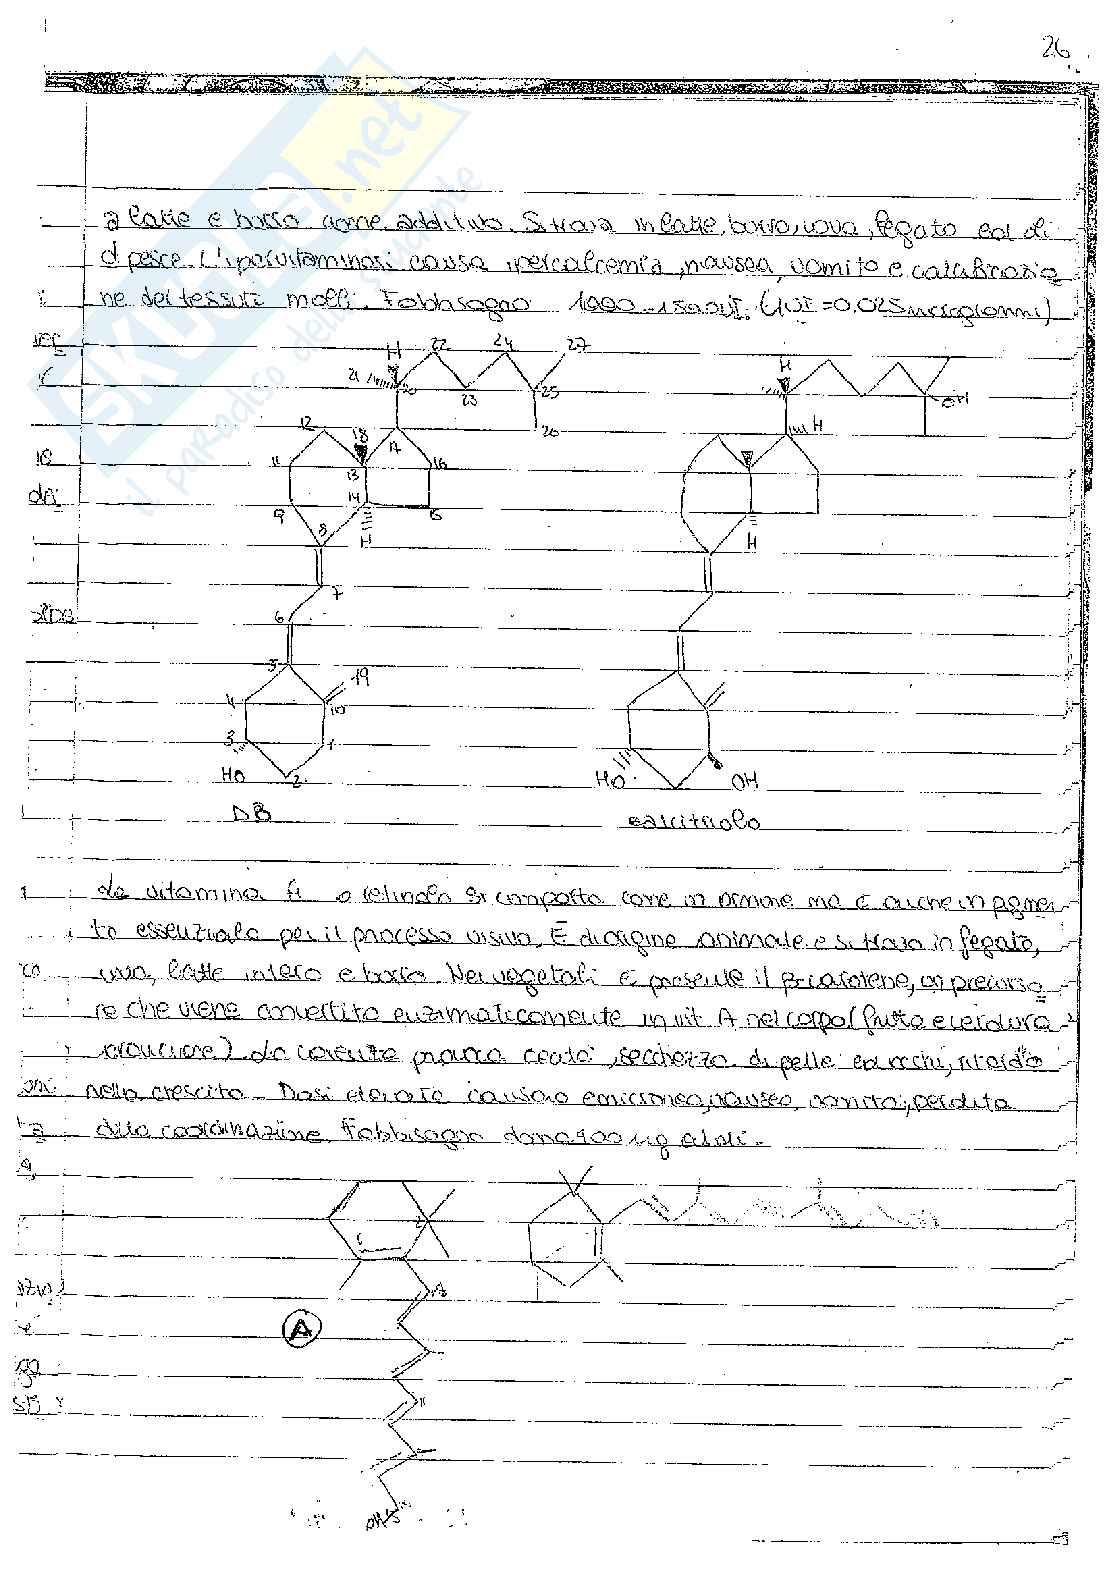 26
SKUOLA.net
il paradiso dello studente
a latte e burro come additivo. Si trova in latte, burro, uova, fegato ed oli
di pesce. L'ipervitaminosi causa ipercalcemia, nausea, vomito e calcificazio
ne dei tessuti molli. Fabbisogno 1000 - 1500 UI. (1UI = 0,025 microgrammi)
H 22 24 27
21 20 23 25
26
12 18 17
11 13 16
14
9 8 15
H
7
6
5
19
4 10
3 1
HO 2
D3
H
OH
H
H
HO OH
calcitriolo
La vitamina A o retinolo si comporta come un ormone ma è anche un pigmen
to essenziale per il processo visivo. È di origine animale e si trova in fegato,
uova, latte intero e burro. Nei vegetali è presente il β-carotene, un precurso
re che viene convertito enzimaticamente in vit A nel corpo (frutta e verdura
arancione). La carenza provoca cecità, secchezza di pelle ed occhi, ritardo
nella crescita. Dosi elevate causano emicranea, nausea, vomito, perdita
della coordinazione. Fabbisogno donna 900 µg al dì.
A